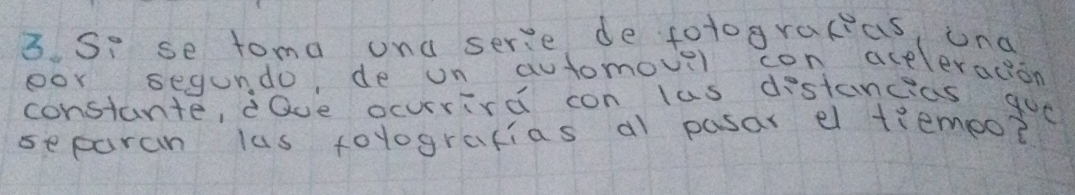 3. Si se toma una serie de fotografías, una
por segundo, de un automovil con aceleración
constante, ¿Que ocurrirá con las distancias que
separan las fotografías al pasar el tiempo?